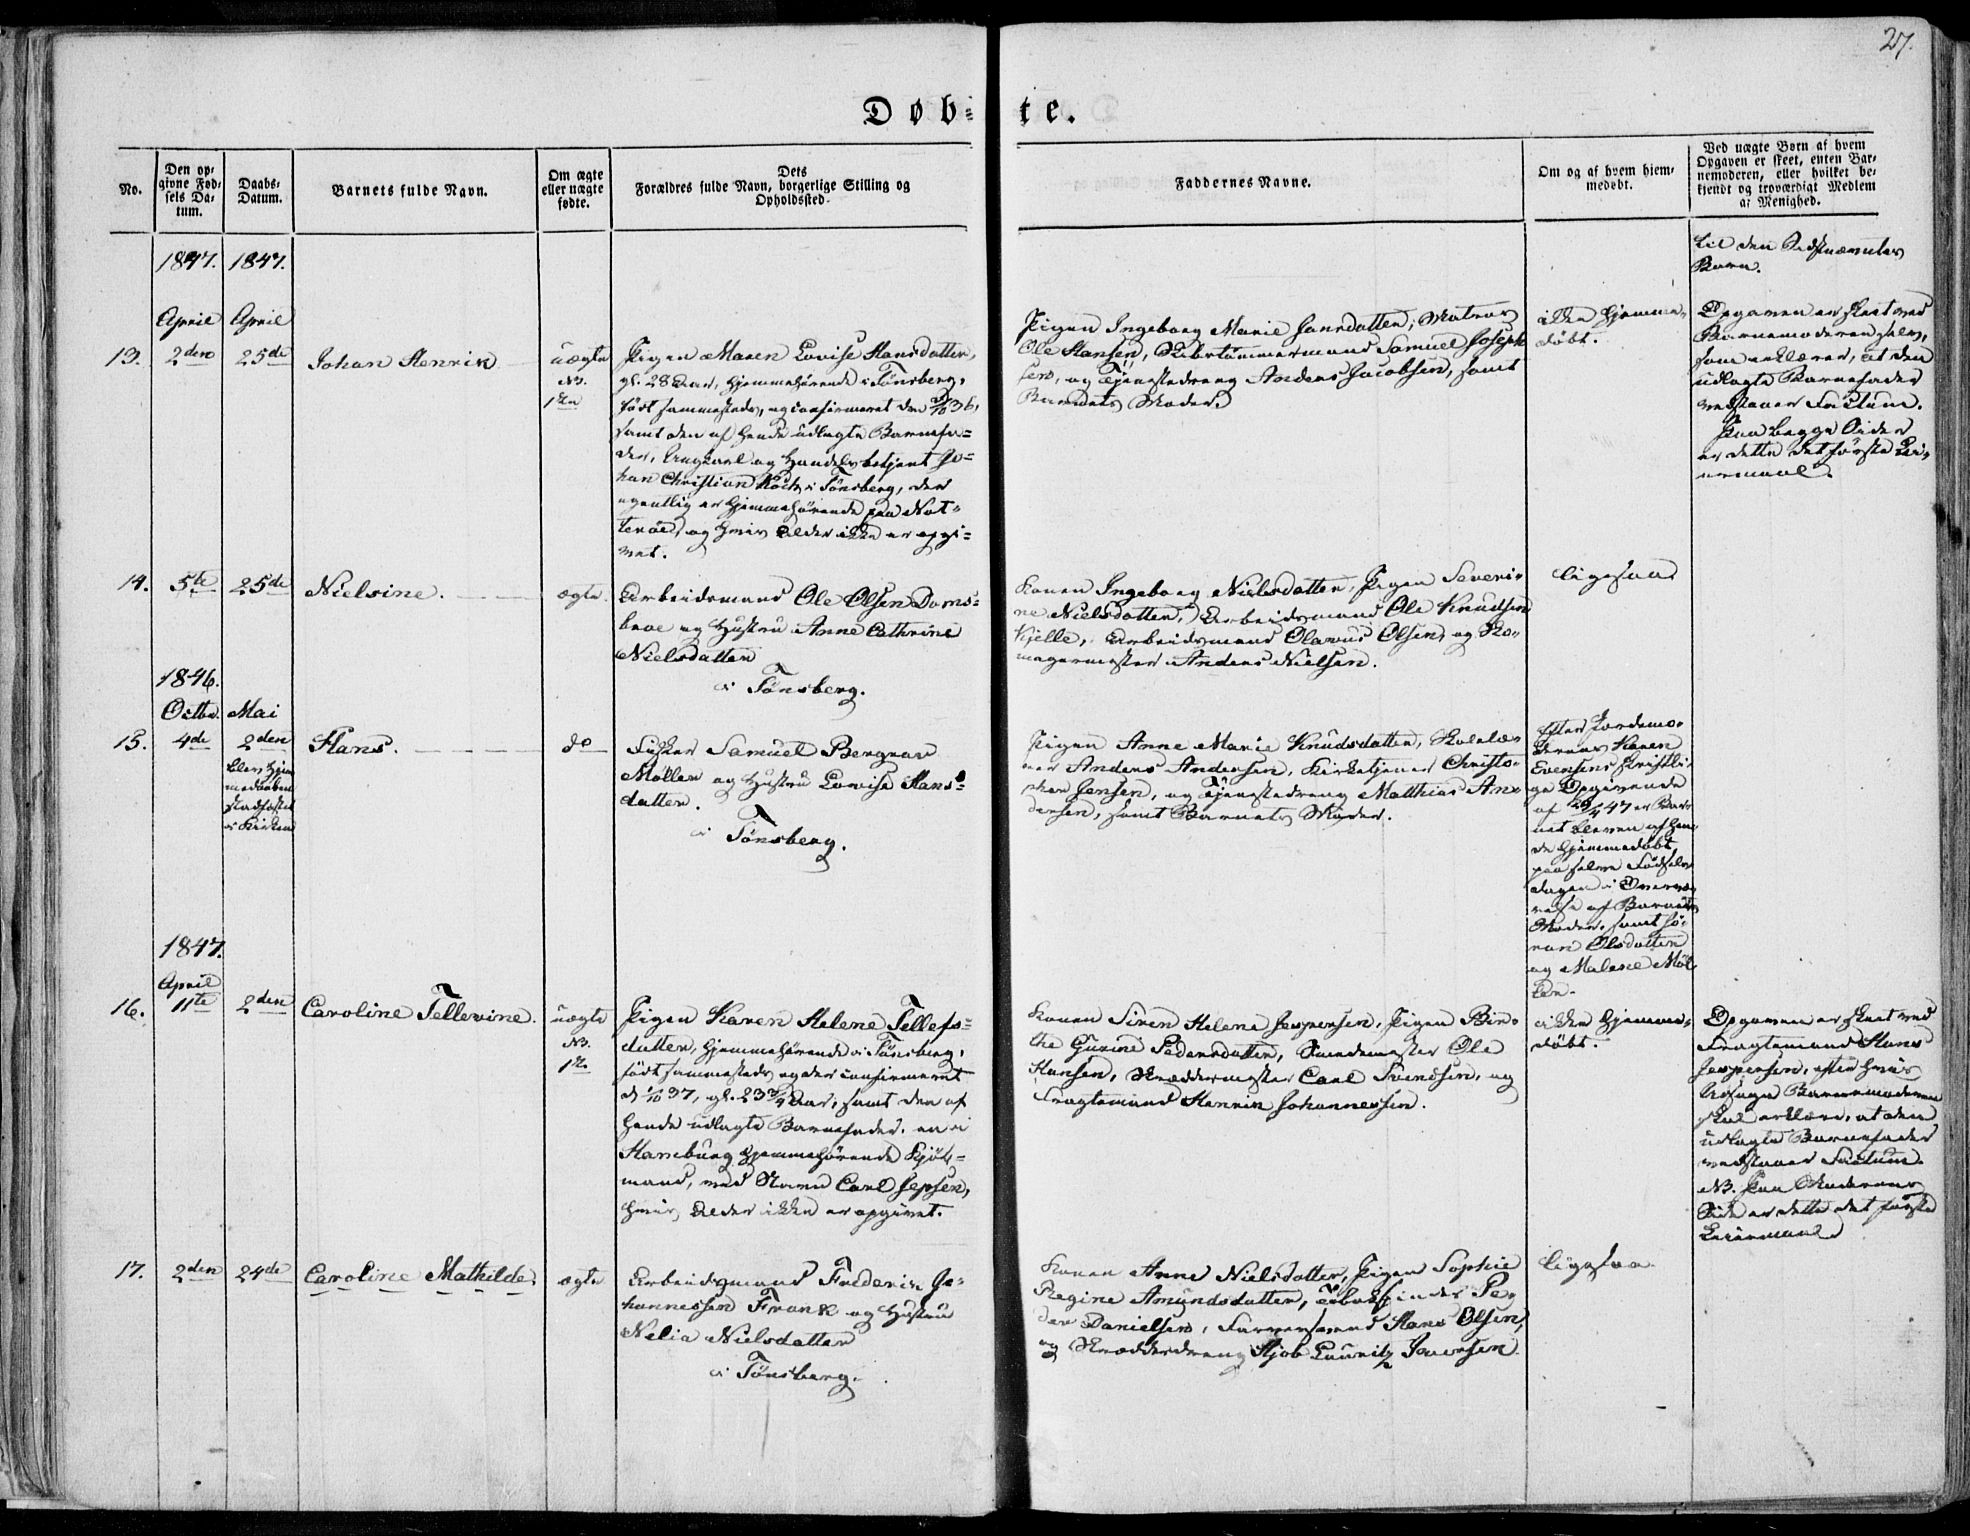 27.
Døb- te.
No.
Den op-
givne Fød-
sels Da-
tum.
Daabs-
Datum.
Barnets fulde Navn.
Om ægte
eller uægte
fødte.
Dets
Forældres fulde Navn, borgerlige Stilling og
Opholdssted.
Faddernes Navne.
Om og af hvem hjem-
medøbt.
Ved uægte Børn af hvem
Opgaven er skeet, enten Bar-
nemoderen, eller hvilket be-
kjendt og troværdigt Medlem
af Menighed.
1847. 1847.
til den Sidstnævntes
Barn.
April April
13. 2den 25de Johan Henrik
uægte
NB.
1ste
Pigen Maren Lovise Hansdatter,
gl. 28 Aar, hjemmehørende i Tønsberg,
født sammesteds, og confirmeret den 36,
samt den af hende udlagte Barnefa-
der, Ungkarl og Handelsbetjent Jo-
han Christian Koch i Tønsberg, der
egentlig er hjemmehørende paa Nøt-
terøe, og hvis Alder ikke er opgi-
vet.
Pigen Ingeborg Marie Hansdatter, Matros
Ole Hansen, Skibstømmermand Samuel Joseph-
sen, og Tjenestedreng Anders Jacobsen, samt
Barnets Moder.
ikke hjemme-
døbt.
Opgaven er skeet ved
Barnemoderen selv,
som erklærer, at den
udlagte Barnefader
vedstaaer Factum.
Paa begge Sider
er dette det første Lei-
ermaal.
14. 5te 25de Nielsine. ægte.
Arbeidsmand Ole Olsen Doms-
broe og Hustru Anne Cathrine
Nielsdatter
i Tønsberg.
Konen Ingeborg Nielsdatter, Pigen Severi-
ne Nielsdatter, Arbeidsmand Ole Knudsen
Kjelle, Arbeidsmand Olavus Olsen, og Sko-
magermester Anders Nielsen.
ligesaa.
1846.
Octbr. Mai
15. 4de 2den Hans. do
blev hjem-
medaaben
stadfæstet
i Kirken
Fisker Samuel Bergvar
Møller og Hustru Lovise Hans-
datter.
i Tønsberg.
Pigen Anne Marie Knudsdatter, Skolelæ-
rer Anders Andersen, Kirketjener Christo-
pher Jensen, og Tjenestedreng Matthias An-
dersen, samt Barnets Moder.
Efter Jordemo-
deren Karen
Evensens skriftli-
ge Opgivende
af 47 er Bar-
net bleven af hen-
de hjemmedøbt,
paa selve Fødsels-
dagen i Overvæ-
relse af Barnets
Moder, samt Sø-
ren Olsdatter
og Malene Møl-
ler.
1847.
April
16. 11te 2den Caroline Tellevine.
uægte
NB.
1ste
Pigen Karen Helene Tellefs-
datter, hjemmehørende i Tønsberg,
født sammesteds og der confirmeret
d 1/10 37, gl. 23 3/4 Aar, samt den af
hende udlagte Barnefader, en i
Hamburg hjemmehørende Sjø-
mand, ved Navn Carl Jepsen,
hvis Alder ikke er opgivet.
Konen Siren Helene Jespersen, Pigen Bir-
the Gurine Pedersdatter, Smedemester Ole
Hansen, Skræddermester Carl Svendsen, og
Fragtemand Henrik Johannessen.
ikke hjemme-
døbt.
Opgaven er skeet ved
Fragtemand Hans
Jespersen, efter hvis
Udsagn Barnemoderen
skal erklære, at den
udlagte Barnefader
vedstaaer Factum.
NB. Paa Moderens
Side er dette det første
Leiermaal.
17. 2den 24de Caroline Mathilde. ægte
Arbeidsmand Frederik Jo-
hannessen Frank og Hustru
Nelia Nielsdatter
i Tønsberg.
Konen Anne Nielsdatter, Pigen Sophie
Regine Amundsdatter, Tobakspinder Pe-
der Danielsen, Farversvend Hans Olsen,
og Skrædderdreng Hjob Lauritz Iversen.
ligesaa.